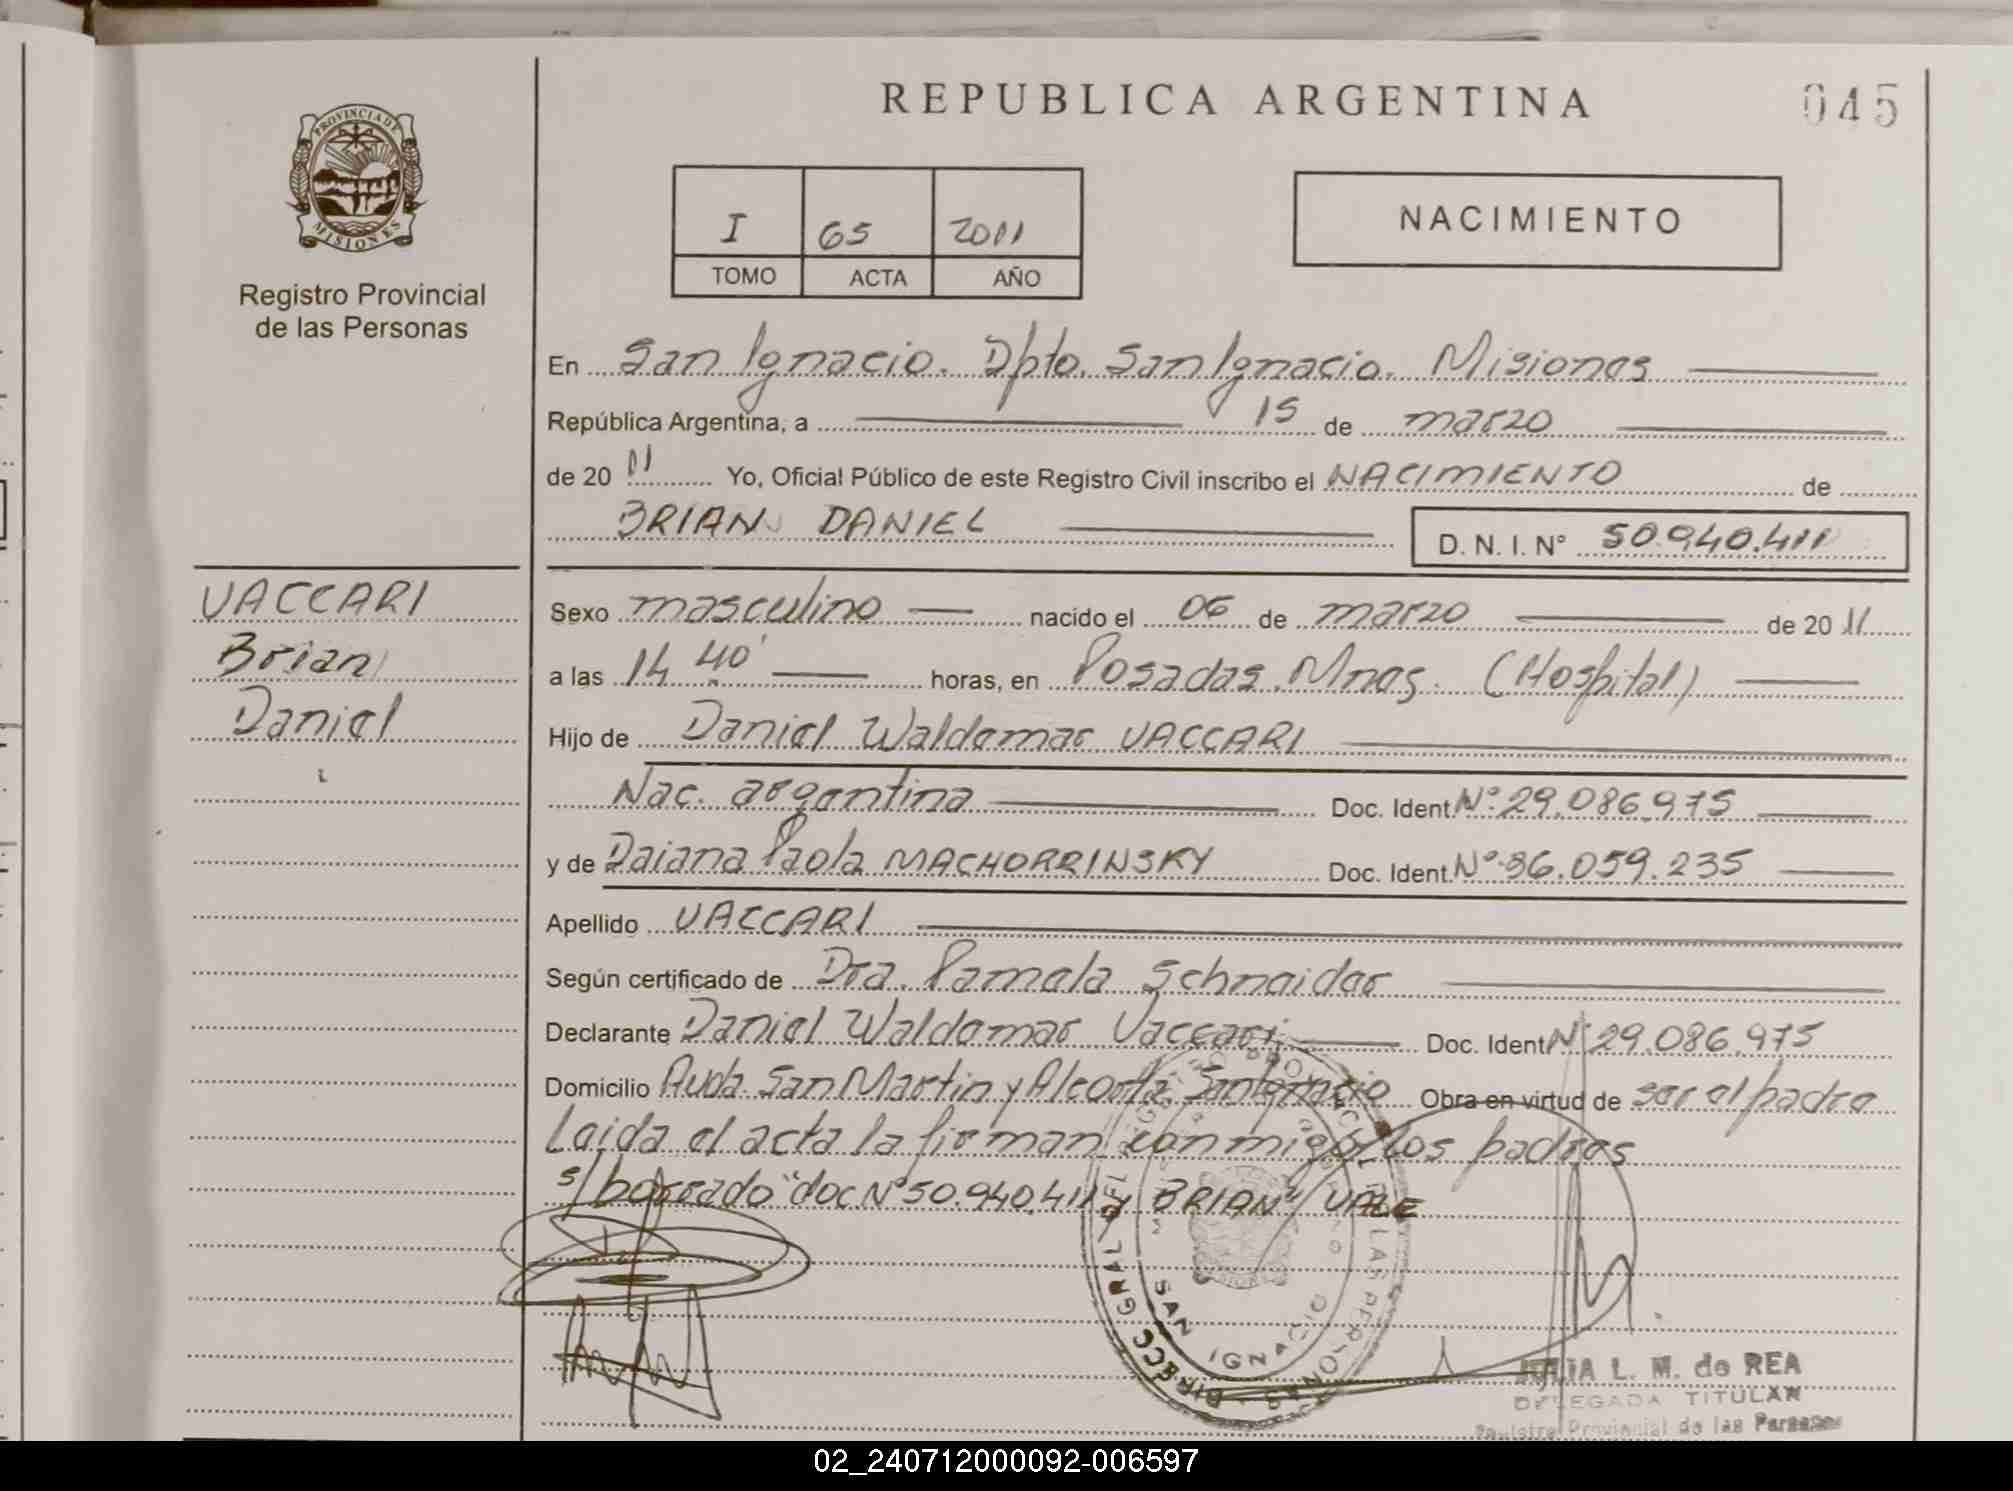 REPUBLICA ARGENTINA
045
PROVINCIA DE
MISIONES
Registro Provincial
de las Personas
I 65 2011
TOMO ACTA AÑO
NACIMIENTO
En San Ignacio. Dpto. San Ignacio. Misiones
República Argentina, a 15 de marzo
de 20 11 Yo, Oficial Público de este Registro Civil inscribo el NACIMIENTO de
BRIAN DANIEL
D. N. I. N° 50.940.411
VACCARI
Brian
Daniel
Sexo masculino nacido el 06 de marzo de 20 11
a las 14 40' horas, en Posadas. Mnes. (Hospital)
Hijo de Daniel Waldemar VACCARI
Nac. argentina Doc. Ident. N°. 29.086.975
y de Daiana Paola MACHORRINSKY Doc. Ident. N° 36.059.235
Apellido VACCARI
Según certificado de Dra. Pamela Schneider
Declarante Daniel Waldemar Vaccari Doc. Ident N° 29.086.975
Domicilio Avda. San Martin y Alcorta San Ignacio Obra en virtud de ser el padre
Leida el acta la firman conmigo los padres
s/borrado "doc N° 50.940.411 y BRIAN" VALE
DIRECC GRAL DEL REGISTRO PROVINCIAL DE LAS PERSONAS
SAN IGNACIO
JULIA L. M. de REA
DELEGADA TITULAR
Registro Provincial de las Personas
02_240712000092-006597